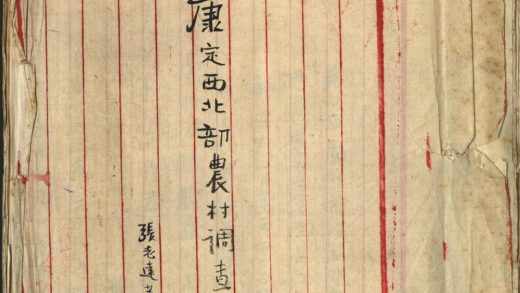 康定西北部農村調查
張志遠